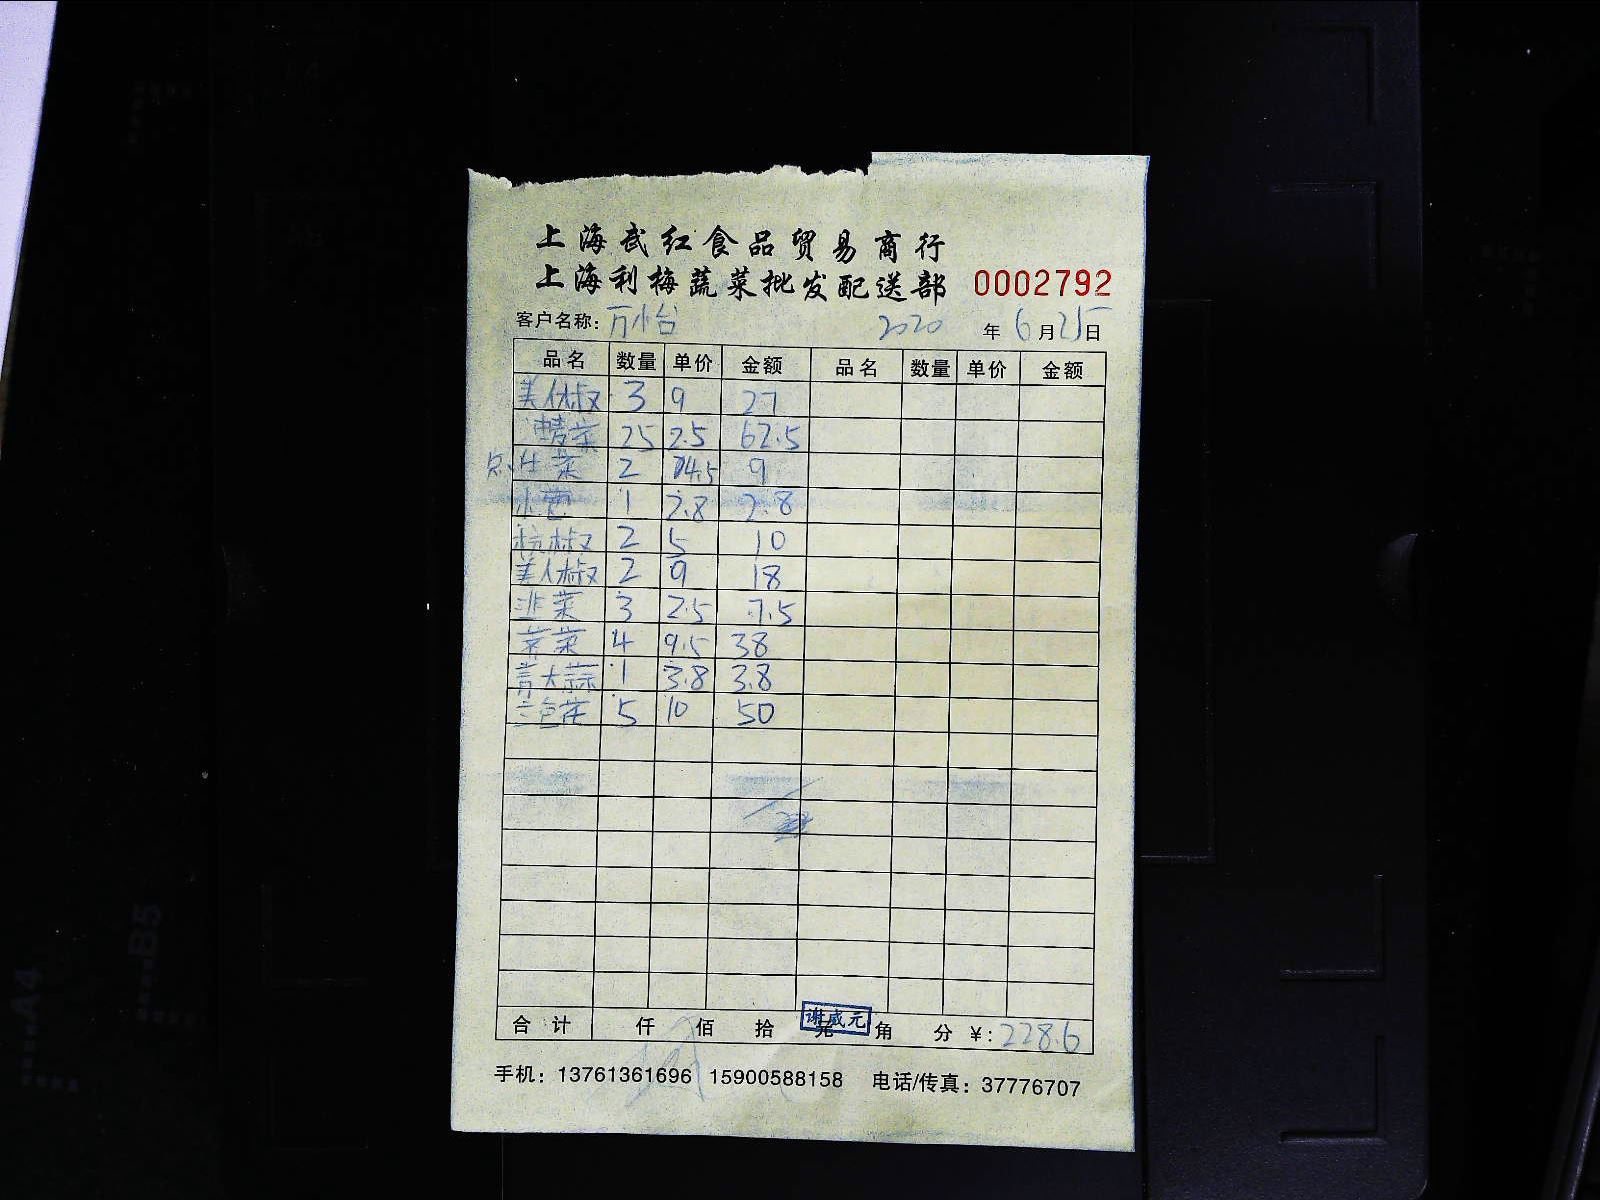 上海武红食品贸易商行
上海利梅蔬菜批发配送部 0002792
客户名称：万怡 2020 年 6 月 25 日
品名 数量 单价 金额 品名 数量 单价 金额
美人椒 3 9 27
油青菜 25 2.5 62.5
生菜 2 4.5 9
小芑 1 2.8 2.8
杭椒 2 5 10
美人椒 2 9 18
韭菜 3 2.5 7.5
荠菜 4 9.5 38
青大蒜 1 3.8 3.8
三色花 5 10 50
合计 仟 佰 拾 元 角 分 ¥：228.6
谢咸元
手机：13761361696 15900588158 电话/传真：37776707